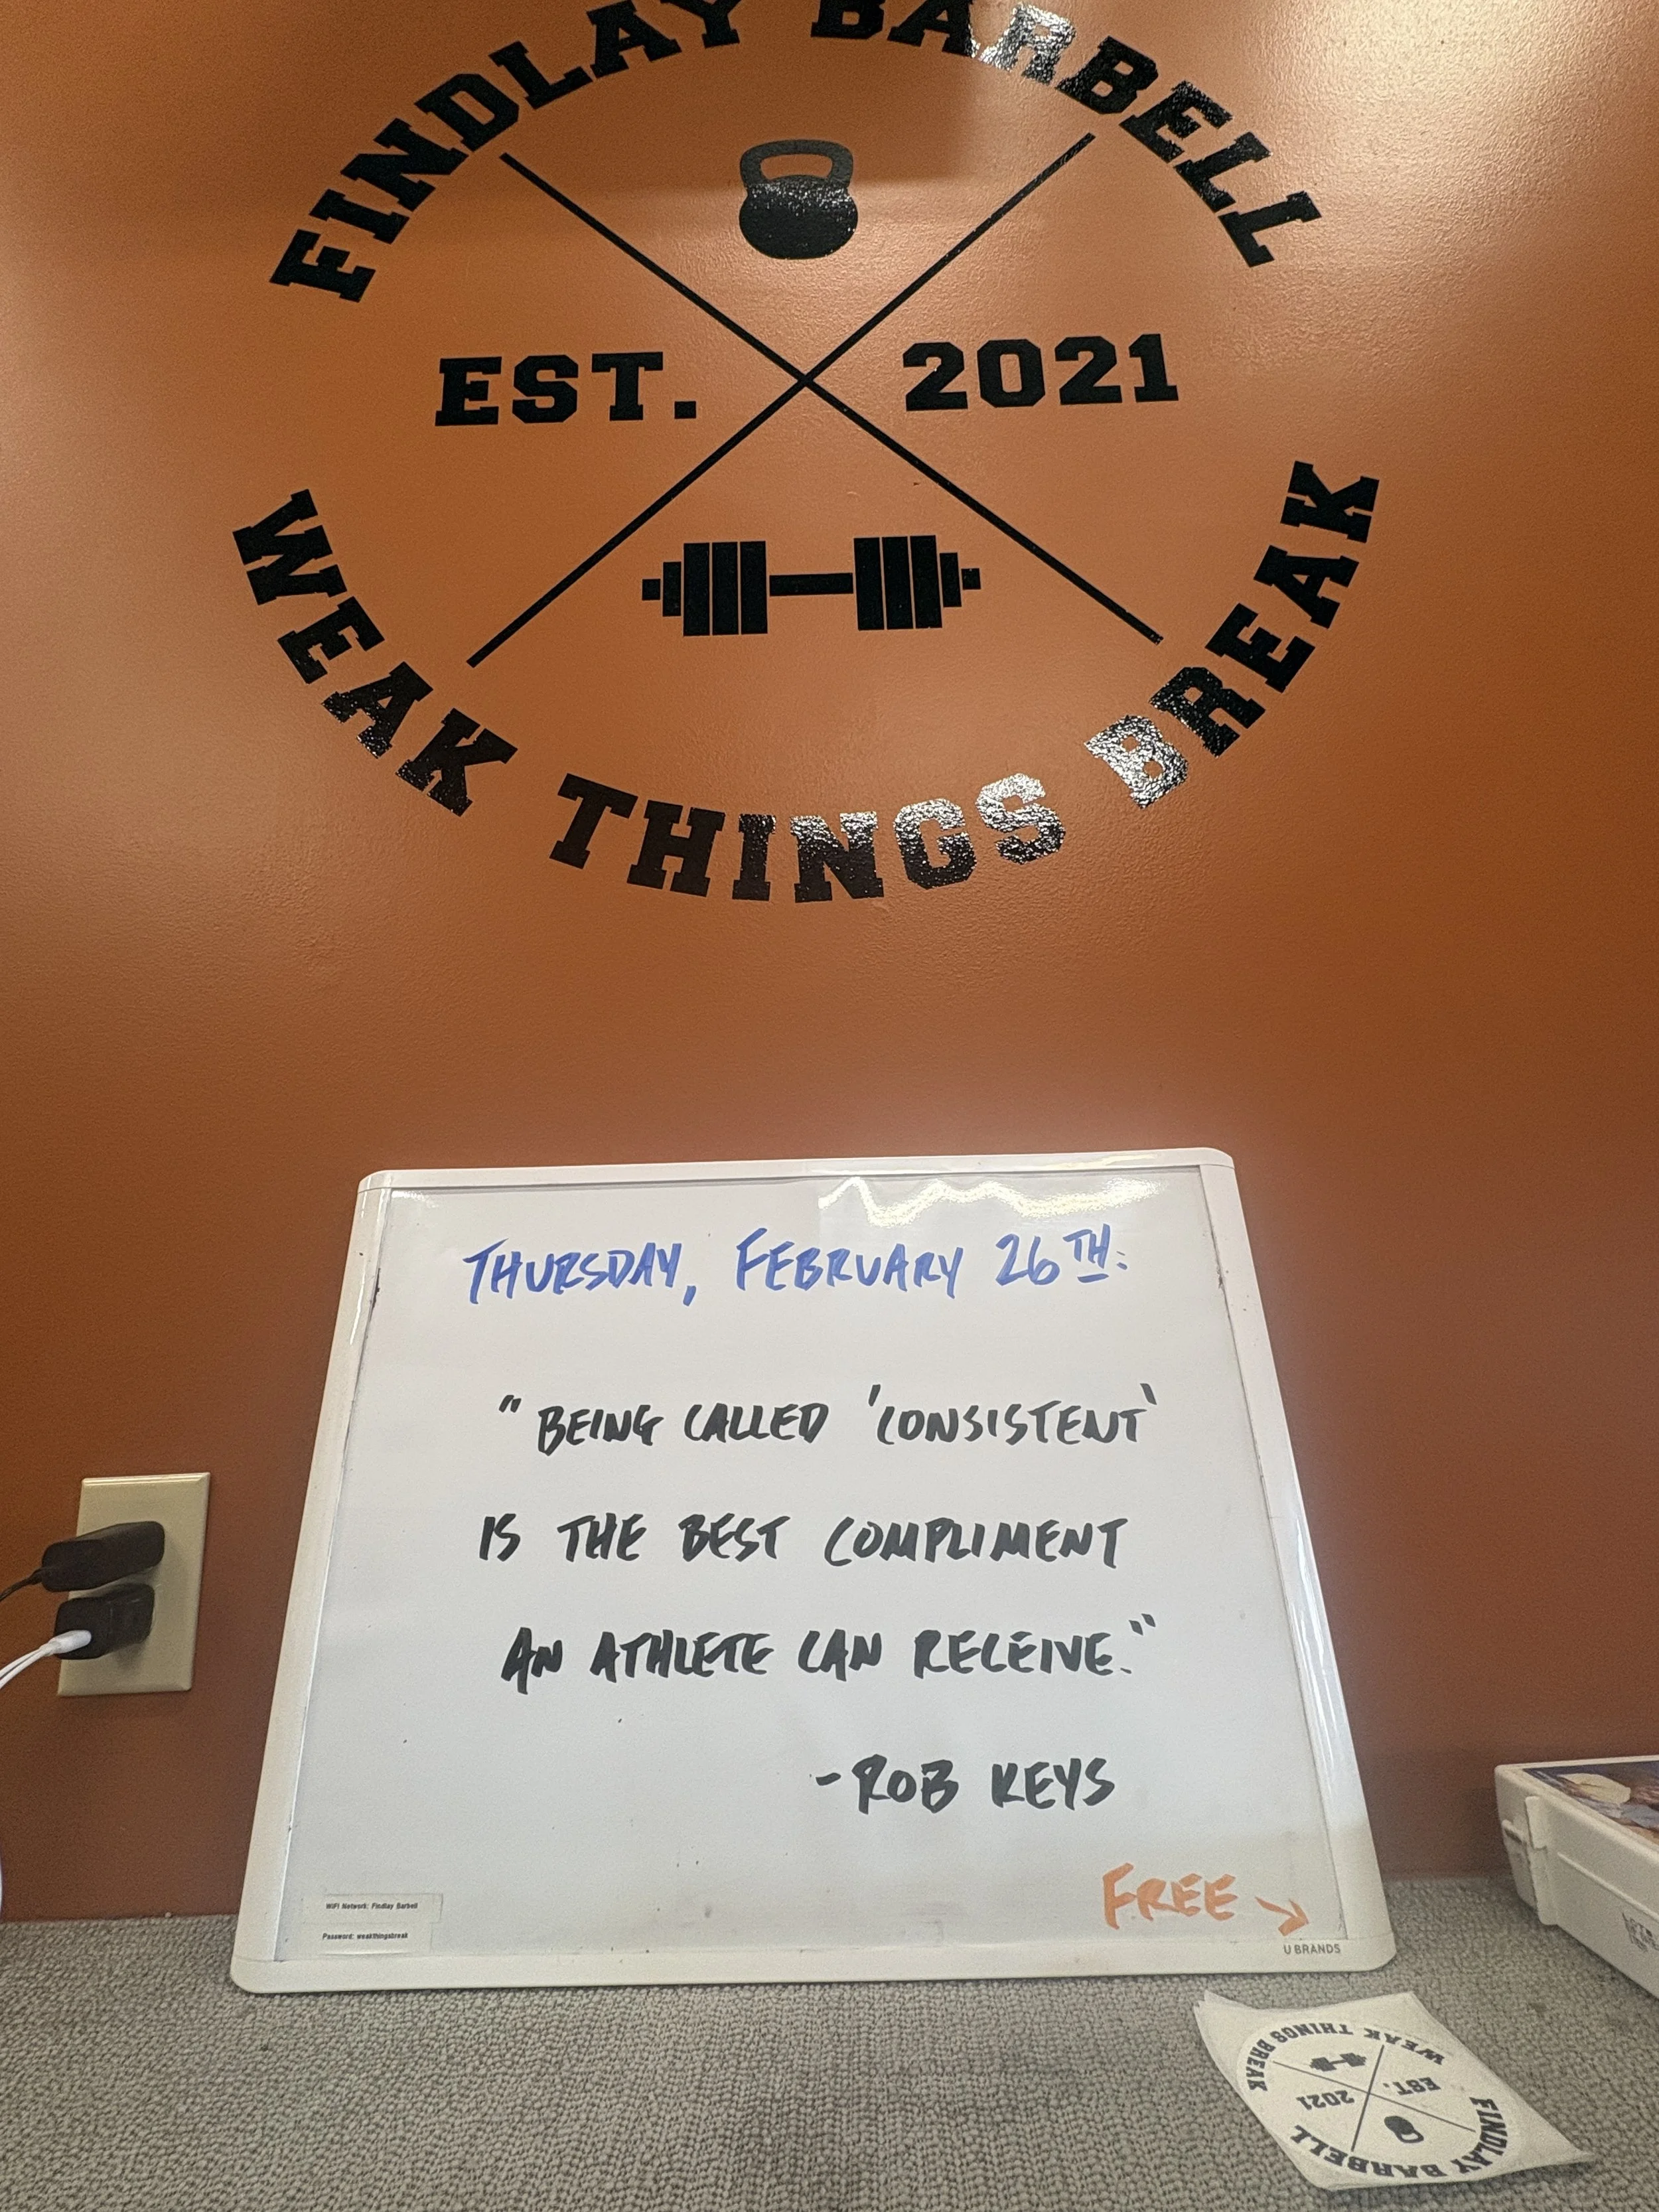 FINDLAY BARBELL
EST. 2021
WEAK THINGS BREAK
THURSDAY, FEBRUARY 26TH:
"BEING CALLED 'CONSISTENT'
IS THE BEST COMPLIMENT
AN ATHLETE CAN RECEIVE."
-ROB KEYS
FREE →
WiFi Network: Findlay Barbell
Password: weakthingsbreak
U BRANDS
FINDLAY BARBELL
EST. 2021
WEAK THINGS BREAK